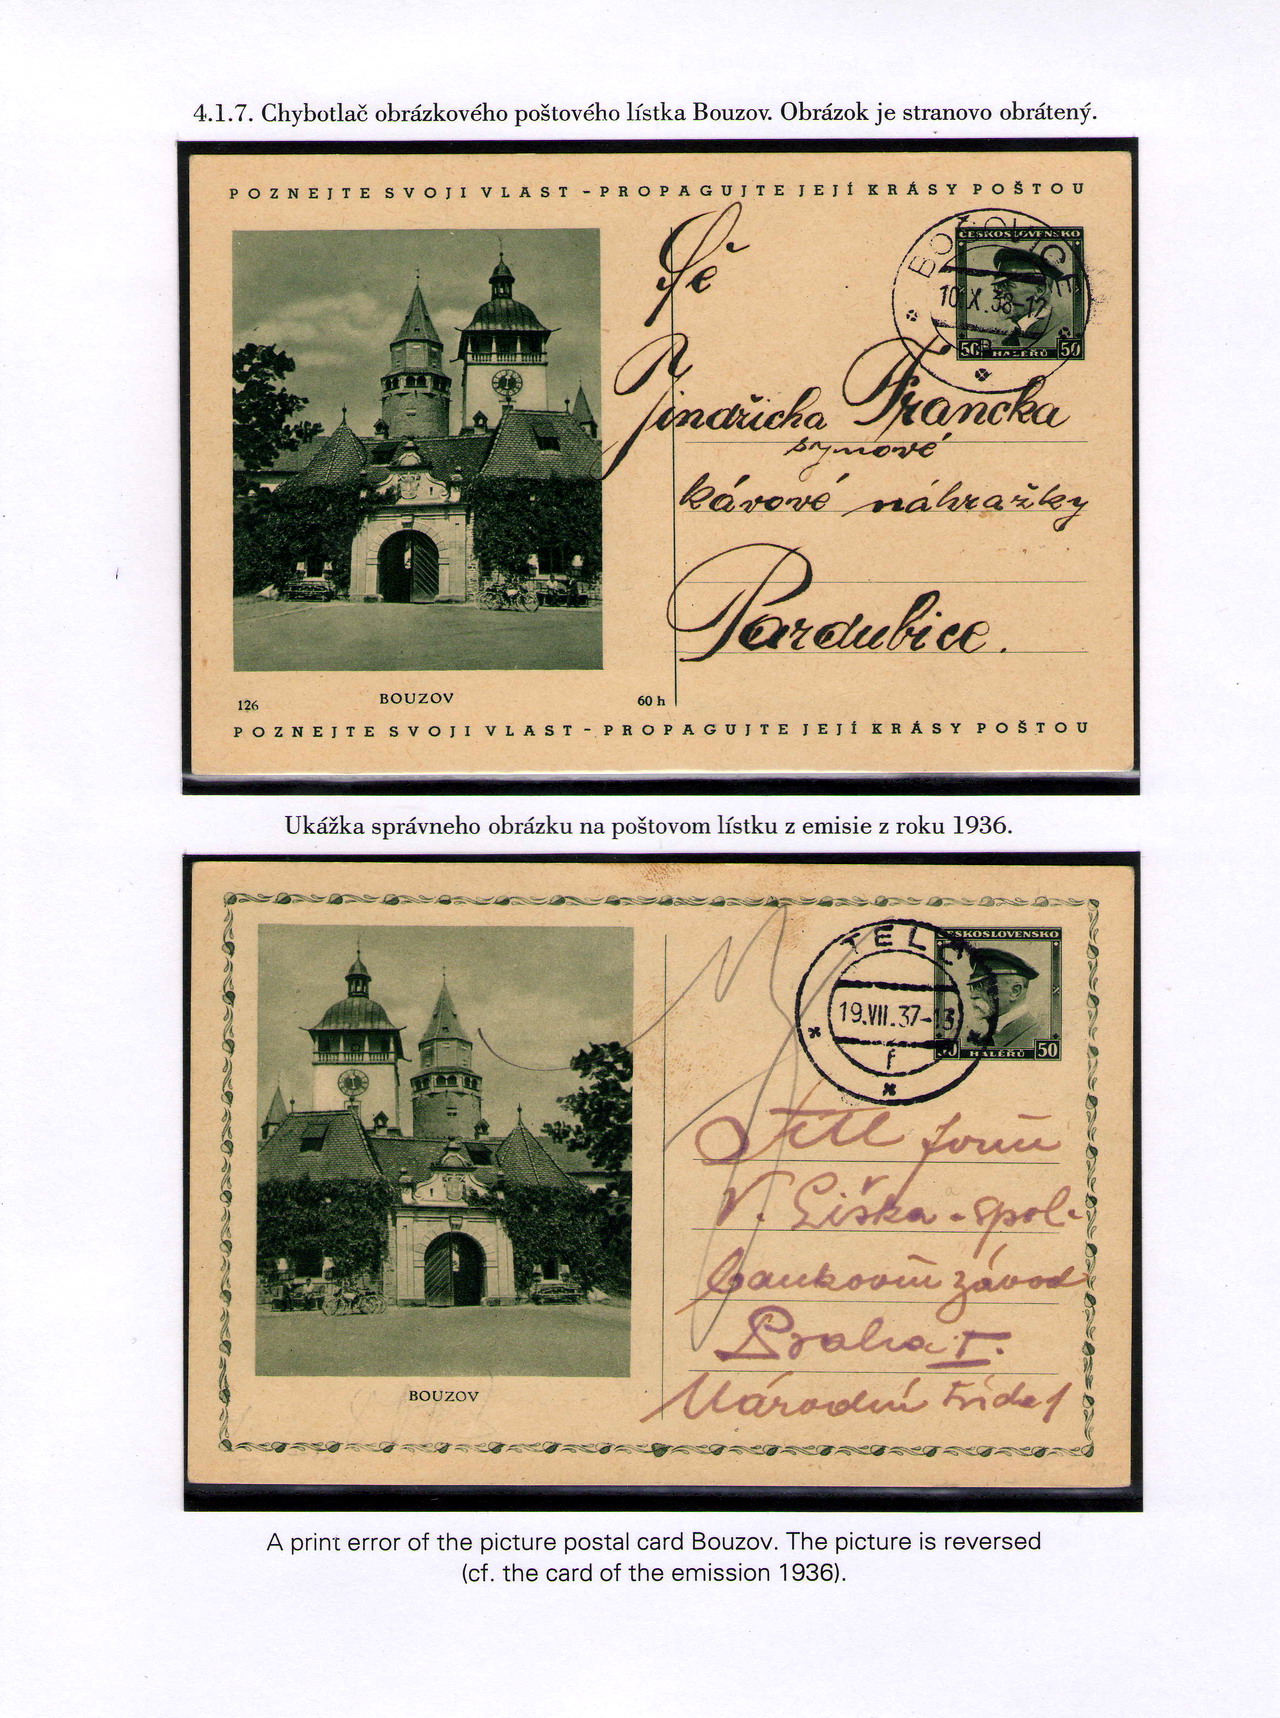 4.1.7. Chybotlač obrázkového poštového lístka Bouzov. Obrázok je stranovo obrátený.
POZNEJTE SVOJI VLAST - PROPAGUJTE JEJÍ KRÁSY POŠTOU
ČESKOSLOVENSKO
10.X.38-12
50 HALÉŘŮ 50
Fě
Jindřicha Francka
synové
kávové náhražky
Pardubice.
126 BOUZOV 60 h
POZNEJTE SVOJI VLAST - PROPAGUJTE JEJÍ KRÁSY POŠTOU
Ukážka správneho obrázku na poštovom lístku z emisie z roku 1936.
TELČ
ČESKOSLOVENSKO
19.VII.37-13
f
50 HALÉŘŮ 50
Titl firm
V. Liška - spol.
bankovní závod
Praha I.
Národní třída 1
BOUZOV
A print error of the picture postal card Bouzov. The picture is reversed
(cf. the card of the emission 1936).